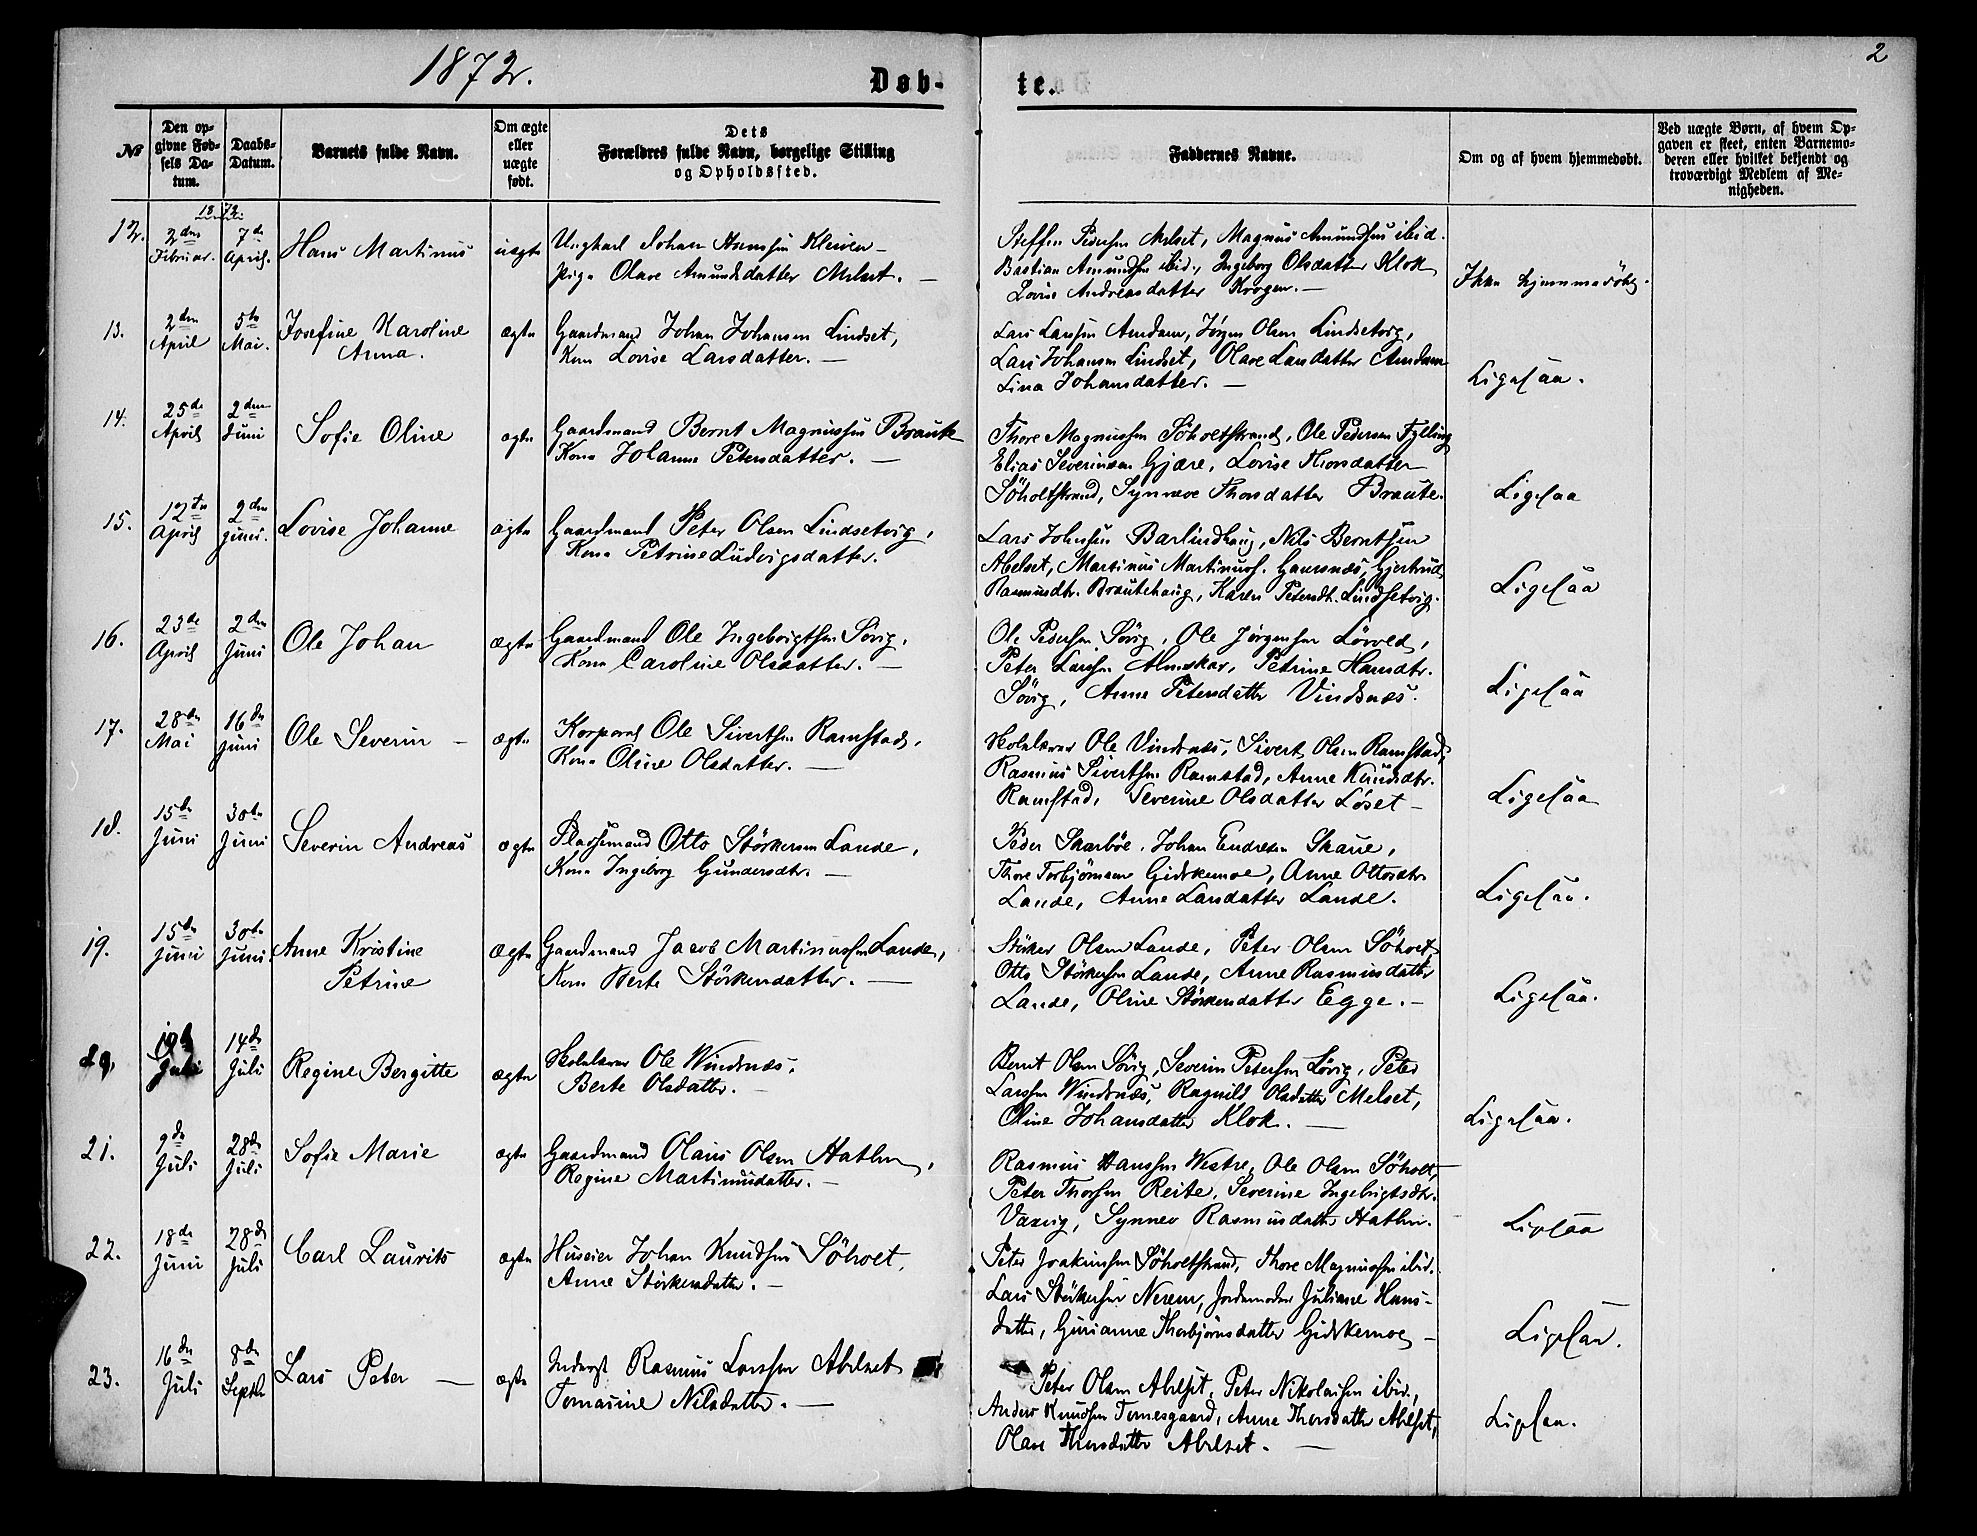 1872.
2
Døb-
te.
№
Den op-
givne Fød-
sels Da-
tum.
Daabs-
Datum.
Barnets fulde Navn.
Om ægte
eller
uægte
født.
Dets
Forældres fulde Navn, borgelige Stilling
og Opholdssted.
Faddernes Navne.
Om og af hvem hjemmedøbt.
Ved uægte Børn, af hvem Op-
gaven er skeet, enten Barnemo-
deren eller hvilket bekjendt og
troværdigt Medlem af Me-
nigheden.
1872
12.
2den
Februar.
7de
April.
Hans Martinus
uægte
Ungkarl Johan Hansen Kleiven
Pige Olave Amundsdatter Melset. —
Steffen Pedersen Melset, Magnus Amundsen ibid.
Bastian Amundsen ibid., Ingeborg Olsdatter Klok
Lovise Andreasdatter Krogen. —
Ikke hjemmedöbt.
13.
2den
April
5te
Mai.
Josefine Karoline
Anna.
ægte
Gaardmand Johan Johansen Lindset,
Kone Lovise Larsdatter. —
Lars Larsen Amdam, Jörgen Olsen Lindsetvig,
Lars Johansen Lindset, Olave Larsdatter Amdam
Lina Johansdatter. —
Ligesaa.
14.
25de
April
2den
Juni
Sofie Oline
ægte
Gaardmand Bernt Magnussen Braute
Kone Johanne Petersdatter. —
Thore Magnussen Söholtstrand, Ole Pedersen Fylling
Elias Severinsen Gjære, Lovise Thorsdatter
Söholtstrand, Synneve Thorsdatter Braute.
Ligesaa
15.
12te
April
2den
Juni.
Lovise Johanne
ægte
Gaardmand Peter Olsen Lindsetvig,
Kone Petrine Ludvigsdatter.
Lars Johnsen Barlindhaug, Nils Berntsen
Abelset, Martinus Martinuss. Gausnæs, Gjertrud
Rasmusdtr. Brautehaug, Karen Petersdt. Lindsetvig.
Ligesaa
16.
23de
April
2den
Juni
Ole Johan
ægte
Gaardmand Ole Ingebrigtsen Sövig,
Kone Caroline Olsdatter. —
Ole Pedersen Sövig, Ole Jörgensen Lörvold,
Peter Larsen Almskar, Petrine Hansdtr.
Sövig, Anne Petersdatter Vindsnæs.
Ligesaa
17.
28de
Mai
16de
Juni
Ole Severin —
ægte
Korporal Ole Sivertsen Ramstad,
Kone Oline Olsdatter. —
Skolelærer Ole Vindsnæs, Sivert Olsen Ramstad,
Rasmus Sivertsen Ramstad, Anne Knudsdtr.
Ramstad, Severine Olsdatter Löset —
Ligesaa
18.
15de
Juni
30te
Juni
Severin Andreas
ægte
Pladsemand Otto Störkersen Lande,
Kone Ingeborg Gundersdtr. —
Peder Skarböe, Johan Endresen Skaue,
Thore Torbjörnsen Gidskemoe, Anne Ottosdtr.
Lande, Anne Larsdatter Lande.
Ligesaa.
19.
15de
Juni
30te
Juni.
Anne Kristine
Petrine
ægte
Gaardmand Jacob Martinussen Lande,
Kone Berte Störkersdatter. —
Störker Olsen Lande, Peter Olsen Söholt,
Otto Störkersen Lande, Anne Rasmusdatter
Lande, Oline Störkersdatter Egge. —
Ligesaa.
Juli
14de
Juli
Regine Bergitte
ægte
Skolelærer Ole Windsnæs,
Berte Olsdatter. —
Bernt Olsen Sövig, Severin Petersen Sövig, Peter
Larsen Windsnæs, Ragnild Olsdatter Melset,
Oline Johansdatter Klok. —
Ligesaa.
21.
9de
Juli
28de
Juli
Sofie Marie
ægte
Gaardmand Olaus Olsen Hatlen,
Regine Martinusdatter. —
Rasmus Hanssen Westre, Ole Olsen Söholt,
Peter Thorsen Reite, Severine Ingebrigtsdtr.
Vaxvig, Synnev Rasmusdatter Hatlen.
Ligesaa
22.
18de
Juni
28de
Juli
Carl Laurits
ægte
Huseier Johan Knudsen Söholt,
Anne Störkersdatter. —
Peter Joakimsen Söholtstrand, Thore Magnussen ibid.
Lars Störkersen Nerem, Jordemoder Juliane Hans-
datter, Gurianne Thorbjörnsdatter Gidskemoe —
Ligesaa.
23.
16de
Juli
8de
Septbr
Lars Peter —
ægte
Inderst Rasmus Larssen Abelset
Tomasine Nilsdatter. —
Peter Olsen Abelset, Peter Nikolaisen ibid.,
Anders Knudsen Tomesgaard, Anne Thorsdatter Abelset,
Olave Thorsdatter Abelset. —
Ligesaa.